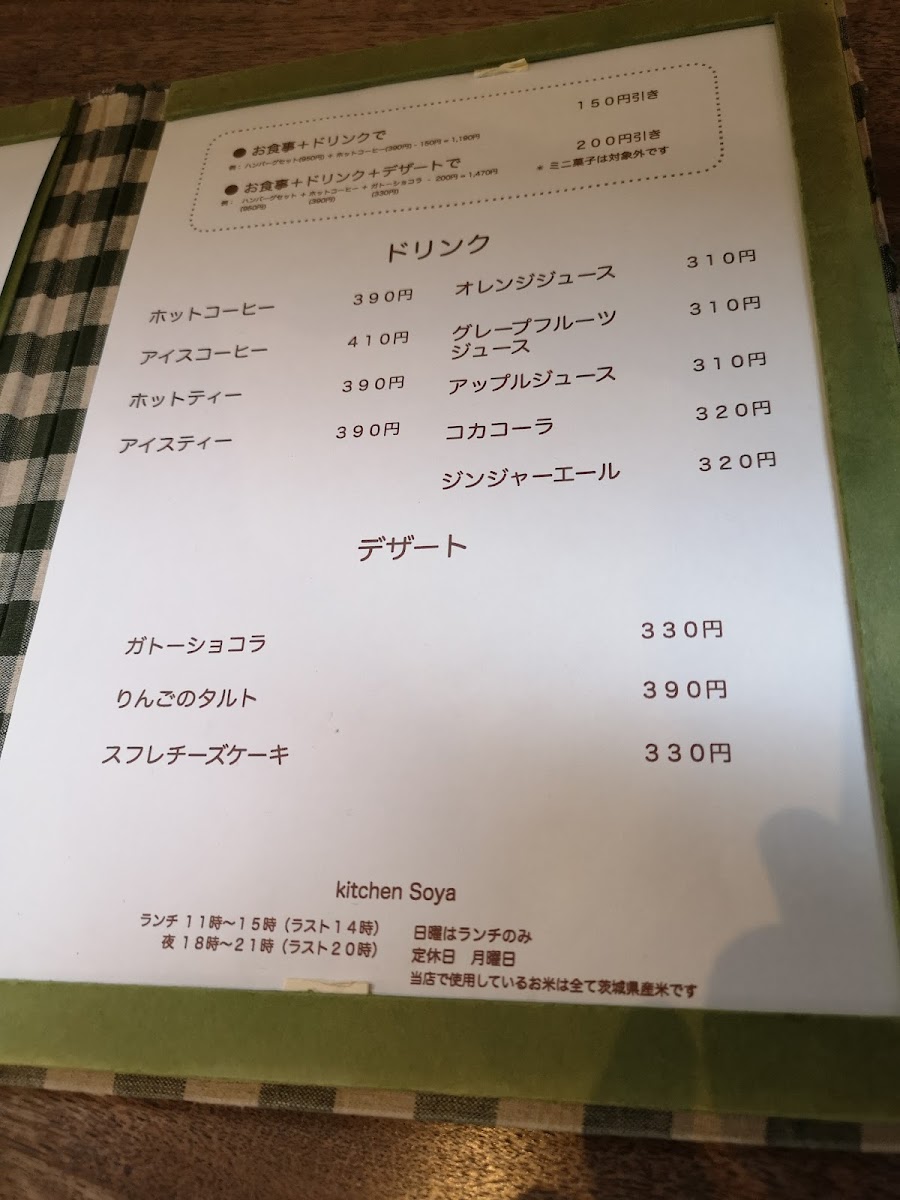 ●お食事＋ドリンクで　１５０円引き
例：ハンバーグセット(950円) ＋ ホットコーヒー(390円) - 150円 = 1,190円
●お食事＋ドリンク＋デザートで　２００円引き
例：ハンバーグセット ＋ ホットコーヒー ＋ ガトーショコラ - 200円 = 1,470円
(950円)　(390円)　(330円)
＊ ミニ菓子は対象外です
ドリンク
ホットコーヒー　３９０円
アイスコーヒー　４１０円
ホットティー　３９０円
アイスティー　３９０円
オレンジジュース　３１０円
グレープフルーツ　３１０円
ジュース
アップルジュース　３１０円
コカコーラ　３２０円
ジンジャーエール　３２０円
デザート
ガトーショコラ　３３０円
りんごのタルト　３９０円
スフレチーズケーキ　３３０円
kitchen Soya
ランチ １１時〜１５時（ラスト１４時）
夜 １８時〜２１時（ラスト２０時）
日曜はランチのみ
定休日　月曜日
当店で使用しているお米は全て茨城県産米です